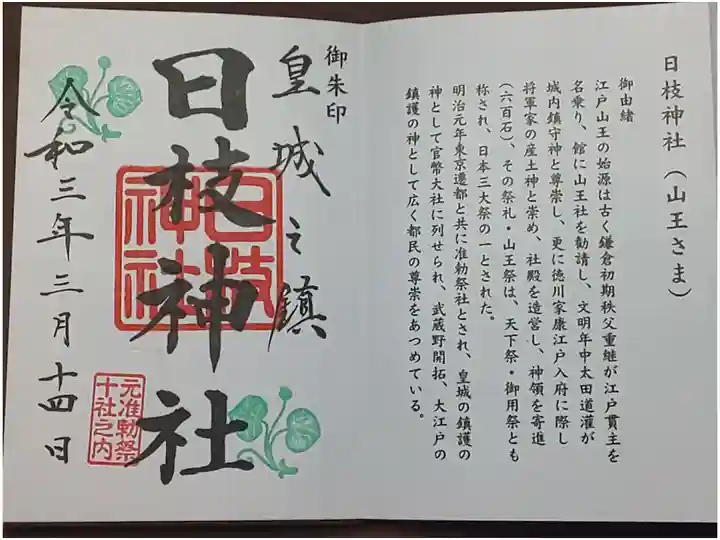 日枝神社(山王さま)
御由緒
江戸山王の始源は古く鎌倉初期秩父重継が江戸貫主を
名乗り、館に山王社を勧請し、文明年中太田道灌が
城内鎮守神と尊崇し、更に徳川家康江戸入府に際し
将軍家の産土神と崇め、社殿を造営し、神領を寄進
(六百石)、その祭礼・山王祭は、天下祭・御用祭とも
称され、日本三大祭の一とされた。
明治元年東京遷都と共に准勅祭社とされ、皇城の鎮護の
神として官幣大社に列せられ、武蔵野開拓、大江戸の
鎮護の神として広く都民の尊崇をあつめている。
御朱印
皇城之鎮
日枝神社
日枝
神社
元准勅祭
十社之内
令和三年三月十四日